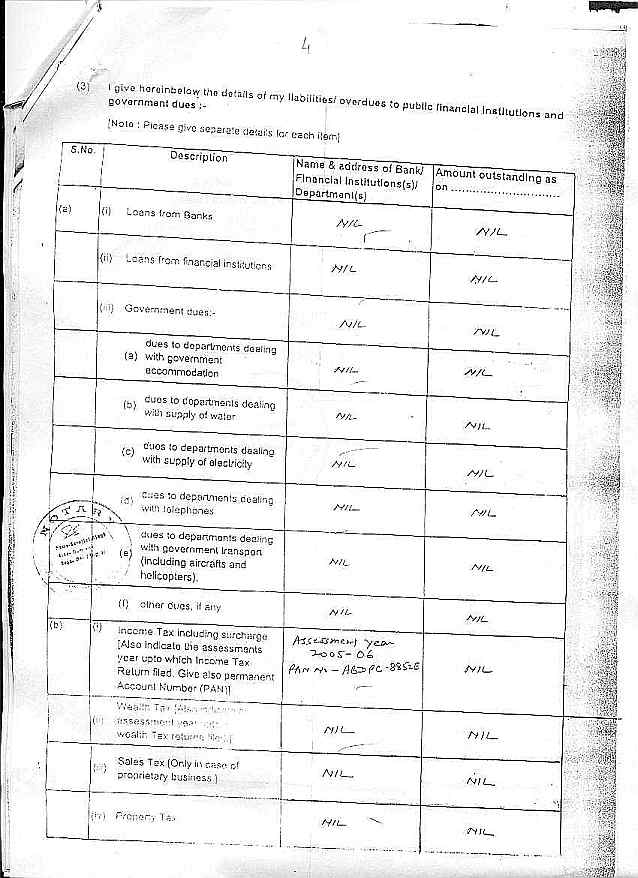 4
(3) I give hereinbelow the details of my liabilities/ overdues to public financial institutions and
government dues :-
[Note : Please give separate details for each item]
S.No. Description Name & address of Bank/ Financial Institutions(s)/ Department(s) Amount outstanding as on ..............................
(a) (i) Loans from Banks NIL NIL
(ii) Loans from financial institutions NIL NIL
(iii) Government dues:- NIL NIL
(a) dues to departments dealing
with government
accommodation NIL NIL
(b) dues to departments dealing
with supply of water NIL NIL
(c) dues to departments dealing
with supply of electricity NIL NIL
(d) dues to departments dealing
with telephones NIL NIL
NOTAR
(e) dues to departments dealing
with government transport
(including aircrafts and
helicopters). NIL NIL
(f) other dues, if any NIL NIL
(b) (i) Income Tax including surcharge
[Also indicate the assessments
year upto which Income Tax
Return filed. Give also permanent
Account Number (PAN)]
Assessment year
2005-06
PAN No - NIL
Wealth Tax [Also
(ii) assessment year
wealth Tax returns filed.] NIL NIL
(iii) Sales Tax (Only in case of
proprietary business.) NIL NIL
(iv) Property Tax NIL NIL